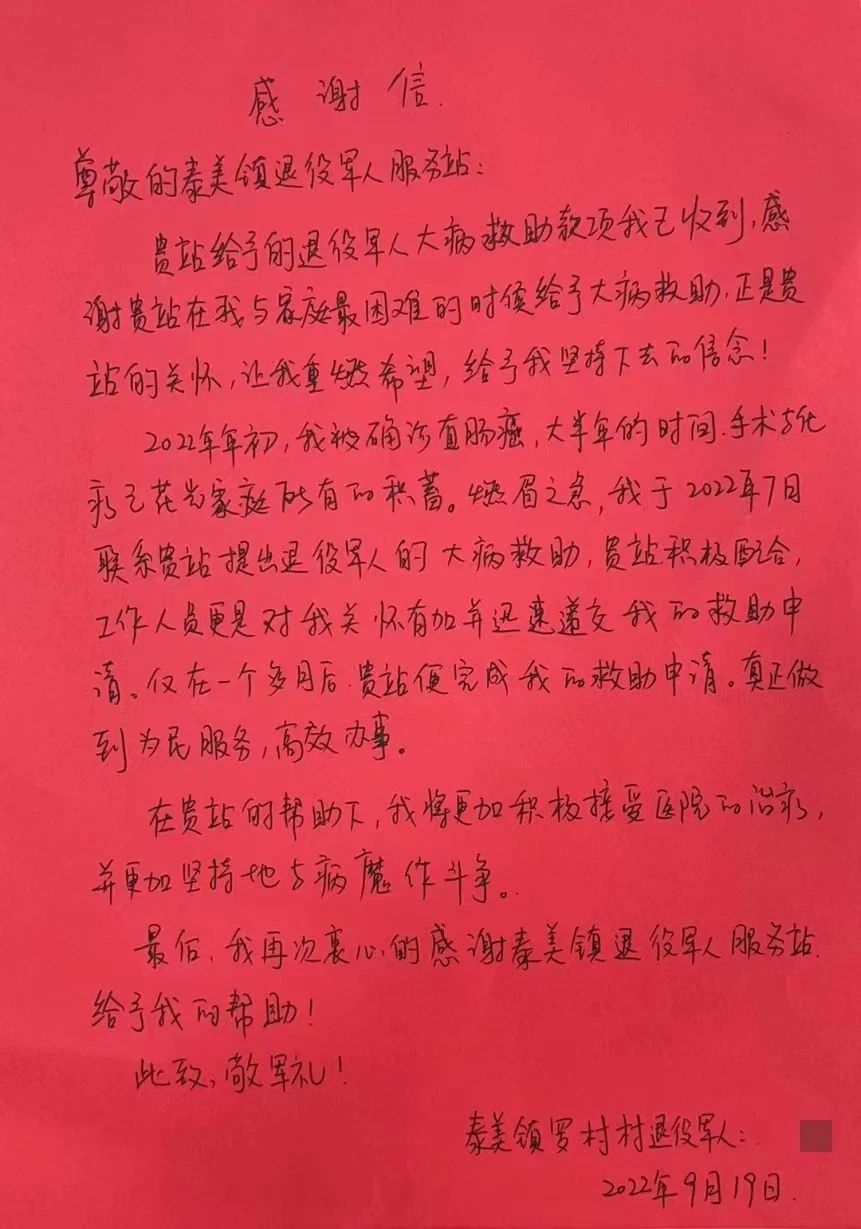 感谢信.
尊敬的泰美镇退役军人服务站：
贵站给予的退役军人大病救助款项我已收到，感
谢贵站在我与家庭最困难的时候给予大病救助，正是贵
站的关怀，让我重燃希望，给予我坚持下去的信念！
2022年年初，我被确诊直肠癌，大半年的时间.手术与化
疗已花光家庭所有的积蓄。燃眉之急，我于2022年7日
联系贵站提出退役军人的大病救助，贵站积极配合，
工作人员更是对我关怀有加并迅速递交我的救助申
请。仅在一个多月后.贵站便完成我的救助申请。真正做
到为民服务，高效办事。
在贵站的帮助下，我将更加积极接受医院的治疗，
并更加坚持地与病魔作斗争。
最后，我再次衷心的感谢泰美镇退役军人服务站.
给予我的帮助！
此致，敬军礼！
泰美镇罗村村退役军人：
2022年9月19日.